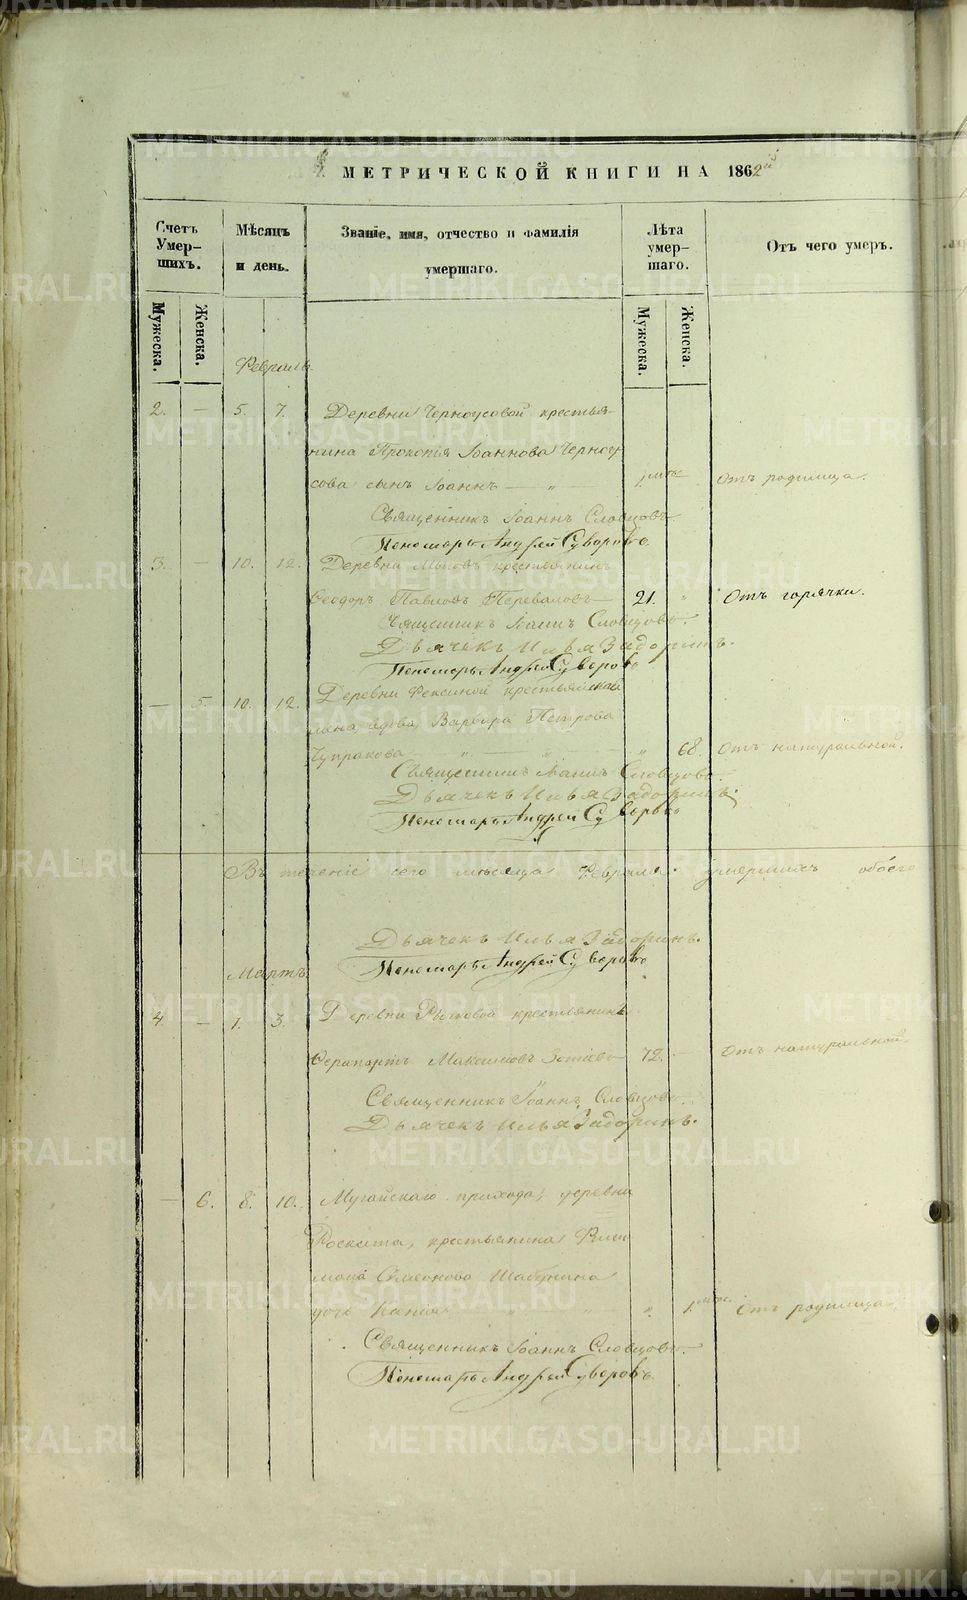 МЕТРИЧЕСКОЙ КНИГИ НА 1862й
Счетъ Умер-шихъ.
Мѣсяцъ и день.
Званіе, имя, отчество и фамилія умершаго.
Лѣта умер-шаго.
Отъ чего умеръ.
Мужеска.
Женска.
Мужеска.
Женска.
Февраль.
2. — 5. 7. Деревни Черноусовой крестья-
нина Прокопія Іоаннова Черноу-
сова сынъ Іоаннъ — „ 1. мѣс. Отъ родимца.
Священникъ Іоаннъ Словцовъ.
Пономарь Андрей Суворовъ.
3. — 10. 12. Деревни крестьянинъ
Ѳеодоръ Павловъ Переваловъ 21. „ Отъ горячки.
Священникъ Іоаннъ Словцовъ.
Дьячекъ Илья Задоринъ.
Пономарь Андрей Суворовъ
— 5. 10. 12. Деревни Фексиной крестьянская
вдова Варвара Петрова
Чупракова — „ — „ — „ 68. Отъ натуральной.
Священникъ Іоаннъ Словцовъ.
Дьячекъ Илья Задоринъ.
Пономарь Андрей Суворовъ
Въ теченіе сего мѣсяца Февраля умершихъ обоего
Дьячекъ Илья Задоринъ.
Пономарь Андрей Суворовъ
Мартъ.
4 — 1. 3. Деревни Рычковой крестьянинъ
Максимовъ Зотѣевъ 72. — Отъ натуральной.
Священникъ Іоаннъ Словцовъ.
Дьячекъ Илья Задоринъ.
— 6. 8. 10. Мугайскаго прихода, деревни
Роската, крестьянина
Шабунина
дочь „ „ „ 1. мѣс. Отъ родимца
Священникъ Іоаннъ Словцовъ.
Пономарь Андрей Суворовъ.
METRIKI.GASO-URAL.RU